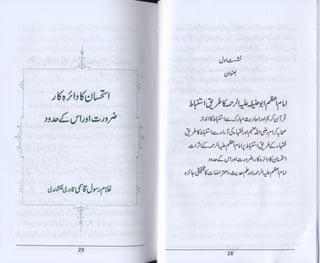 نشست اول
بعنوان
امام اعظم ابوحنیفہ علیہ الرحمہ کا طریق استنباط
قرآن کریم اور احادیث مبارکہ سے استنباط کا انداز
صحابہ کرام رضی اللہ عنہم اور فقہاء کی آراء سے استنباط کا طریق
فقہاء کے طریق استنباط پر امام اعظم علیہ الرحمہ کے اثرات
استحسان کا دائرہ کار، ضرورت اور اس کے حدود
امام اعظم علیہ الرحمہ اور علم حدیث، اعتراضات کا تحقیقی جائزہ
28
استحسان کا دائرہ کار
ضرورت اور اس کے حدود
غلام رسول قاسمی قادری نقشبندی
29